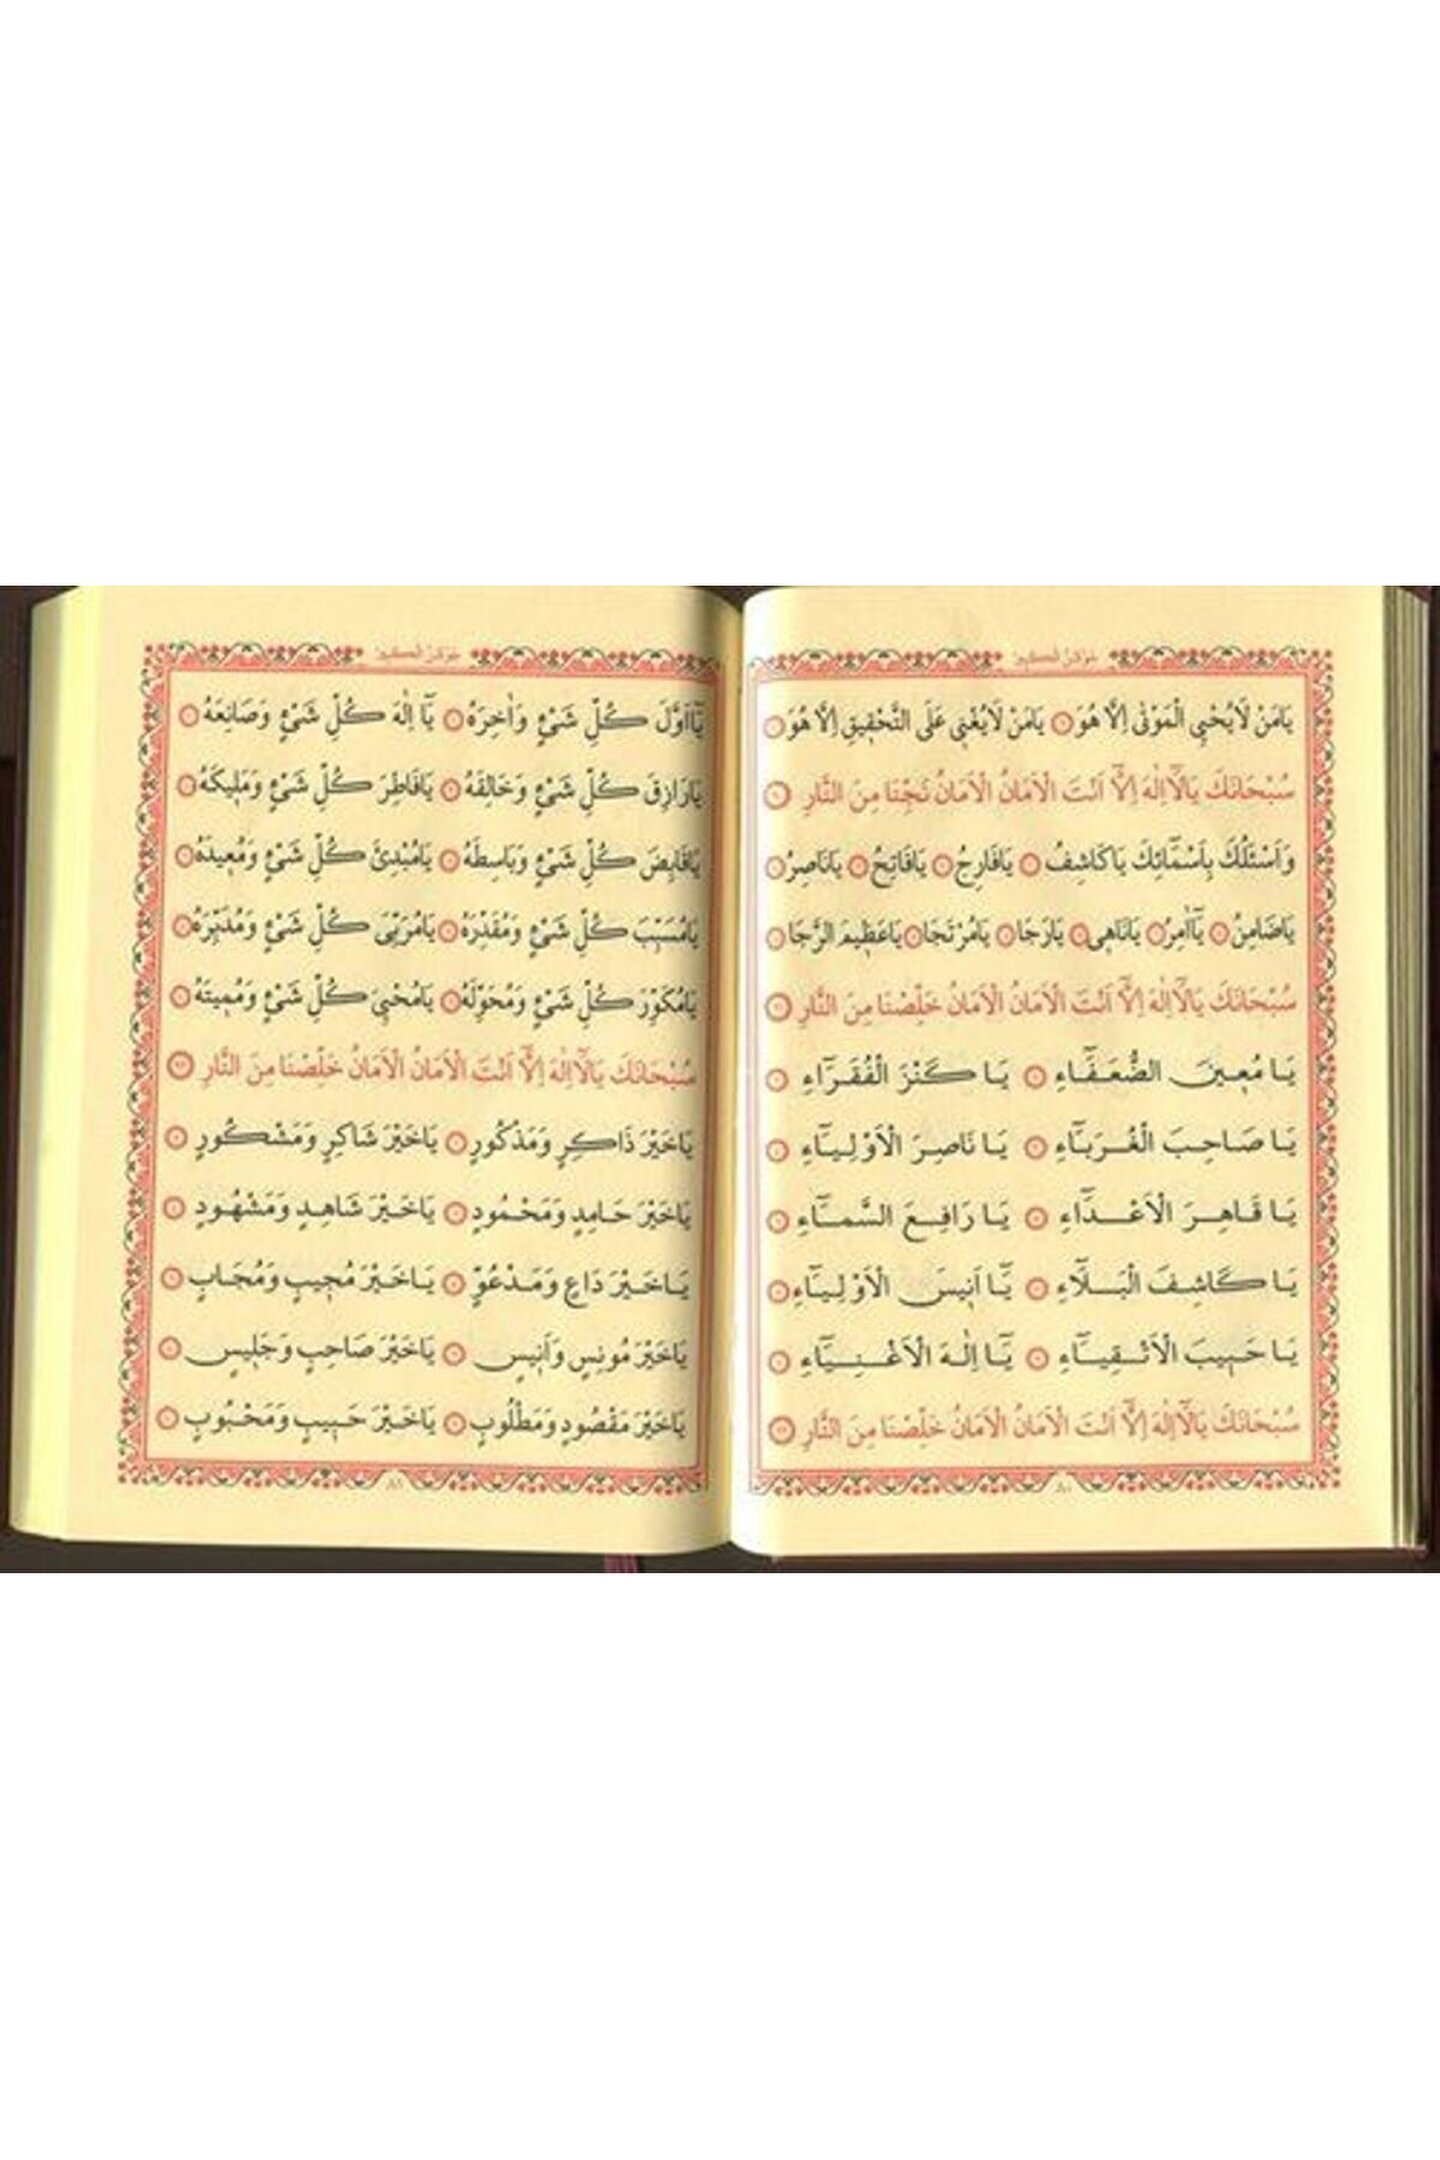 جوشن الكبير
يَامَنْ لَايُحْيِى الْمَوْتٰى اِلَّا هُوَ ۞ يَامَنْ لَايُغْنِى عَلَى التَّحْقِيقِ اِلَّا هُوَ ۞
سُبْحَانَكَ يَالَٓااِلٰهَ اِلَّٓا اَنْتَ الْاَمَانُ الْاَمَانُ نَجِّنَا مِنَ النَّارِ
وَاَسْئَلُكَ بِاَسْمَٓائِكَ يَاكَاشِفُ ۞ يَافَارِجُ ۞ يَافَاتِحُ ۞ يَانَاصِرُ ۞
يَاضَامِنُ ۞ يَٓااٰمِرُ ۞ يَانَاهِى ۞ يَارَجَا ۞ يَامُرْتَجَا ۞ يَاعَظِيمَ الرَّجَا ۞
سُبْحَانَكَ يَالَٓااِلٰهَ اِلَّٓا اَنْتَ الْاَمَانُ الْاَمَانُ خَلِّصْنَا مِنَ النَّارِ
يَا مُعِينَ الضُّعَفَٓاءِ ۞ يَا كَنْزَ الْفُقَرَٓاءِ ۞
يَا صَاحِبَ الْغُرَبَٓاءِ ۞ يَا نَاصِرَ الْاَوْلِيَٓاءِ ۞
يَا قَاهِرَ الْاَعْدَٓاءِ ۞ يَا رَافِعَ السَّمَٓاءِ ۞
يَا كَاشِفَ الْبَلَٓاءِ ۞ يَٓا اَنِيسَ الْاَوْلِيَٓاءِ ۞
يَا حَبِيبَ الْاَتْقِيَٓاءِ ۞ يَٓا اِلٰهَ الْاَغْنِيَٓاءِ ۞
سُبْحَانَكَ يَالَٓااِلٰهَ اِلَّٓا اَنْتَ الْاَمَانُ الْاَمَانُ خَلِّصْنَا مِنَ النَّارِ
٨٠
جوشن الكبير
يَٓااَوَّلَ كُلِّ شَىْءٍ وَاٰخِرَهُ ۞ يَٓا اِلٰهَ كُلِّ شَىْءٍ وَصَانِعَهُ ۞
يَارَازِقَ كُلِّ شَىْءٍ وَخَالِقَهُ ۞ يَافَاطِرَ كُلِّ شَىْءٍ وَمَلِيكَهُ ۞
يَاقَابِضَ كُلِّ شَىْءٍ وَبَاسِطَهُ ۞ يَامُبْدِئَ كُلِّ شَىْءٍ وَمُعِيدَهُ ۞
يَامُسَبِّبَ كُلِّ شَىْءٍ وَمُقَدِّرَهُ ۞ يَامُرَبِّىَ كُلِّ شَىْءٍ وَمُدَبِّرَهُ ۞
يَامُكَوِّرَ كُلِّ شَىْءٍ وَمُحَوِّلَهُ ۞ يَامُحْيِىَ كُلِّ شَىْءٍ وَمُمِيتَهُ ۞
سُبْحَانَكَ يَالَٓااِلٰهَ اِلَّٓا اَنْتَ الْاَمَانُ الْاَمَانُ خَلِّصْنَا مِنَ النَّارِ
يَاخَيْرَ ذَاكِرٍ وَمَذْكُورٍ ۞ يَاخَيْرَ شَاكِرٍ وَمَشْكُورٍ ۞
يَاخَيْرَ حَامِدٍ وَمَحْمُودٍ ۞ يَاخَيْرَ شَاهِدٍ وَمَشْهُودٍ ۞
يَاخَيْرَ دَاعٍ وَمَدْعُوٍّ ۞ يَاخَيْرَ مُجِيبٍ وَمُجَابٍ ۞
يَاخَيْرَ مُونِسٍ وَاَنِيسٍ ۞ يَاخَيْرَ صَاحِبٍ وَجَلِيسٍ ۞
يَاخَيْرَ مَقْصُودٍ وَمَطْلُوبٍ ۞ يَاخَيْرَ حَبِيبٍ وَمَحْبُوبٍ ۞
٨١